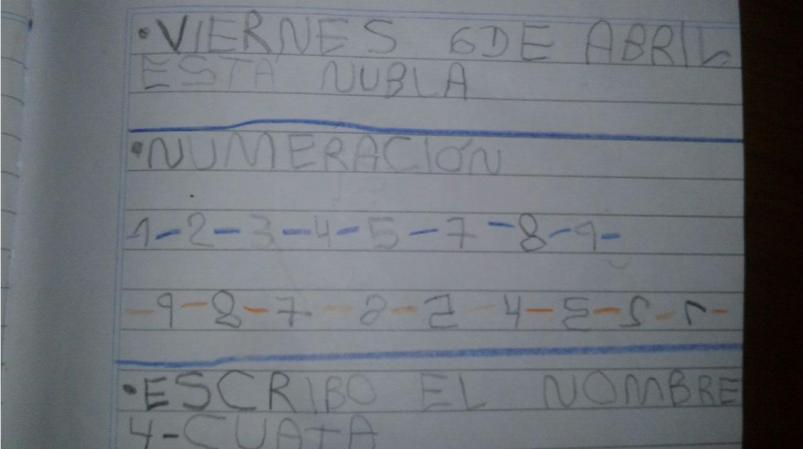 •VIERNES 6 DE ABRIL
ESTA NUBLA
•NUMERACIÓN
1-2-3-4-5-7-8-9-
-9-8-7-6-5-4-3-2-1-
•ESCRIBO EL NOMBRE
4-CUATA